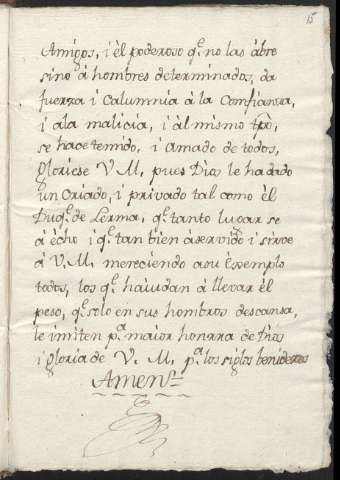 15
Amigos, i èl poderoso q.e no las àbre
sino à hombres determinados, da
fuerza i Calumnia à la Confianza,
i ala malicia, i àl mismo tpõ,
se hace temido, i amado de todos,
gloriese V M, pues Dios le ha dado
un Criado, i privado tal como èl
Duq.e de Lerma, q.e tanto lugar se
à èchо i q.e tan bien àservido i sirve
à V. M. mereciendo aou Exsemplo
todos, los q.e haiudan à llevar èl
peso, q.e solo en sus hombros descansa,
le imiten p.a maior honrra de Dios
i gloria de V. M. p.a los siglos benideros
Amen.